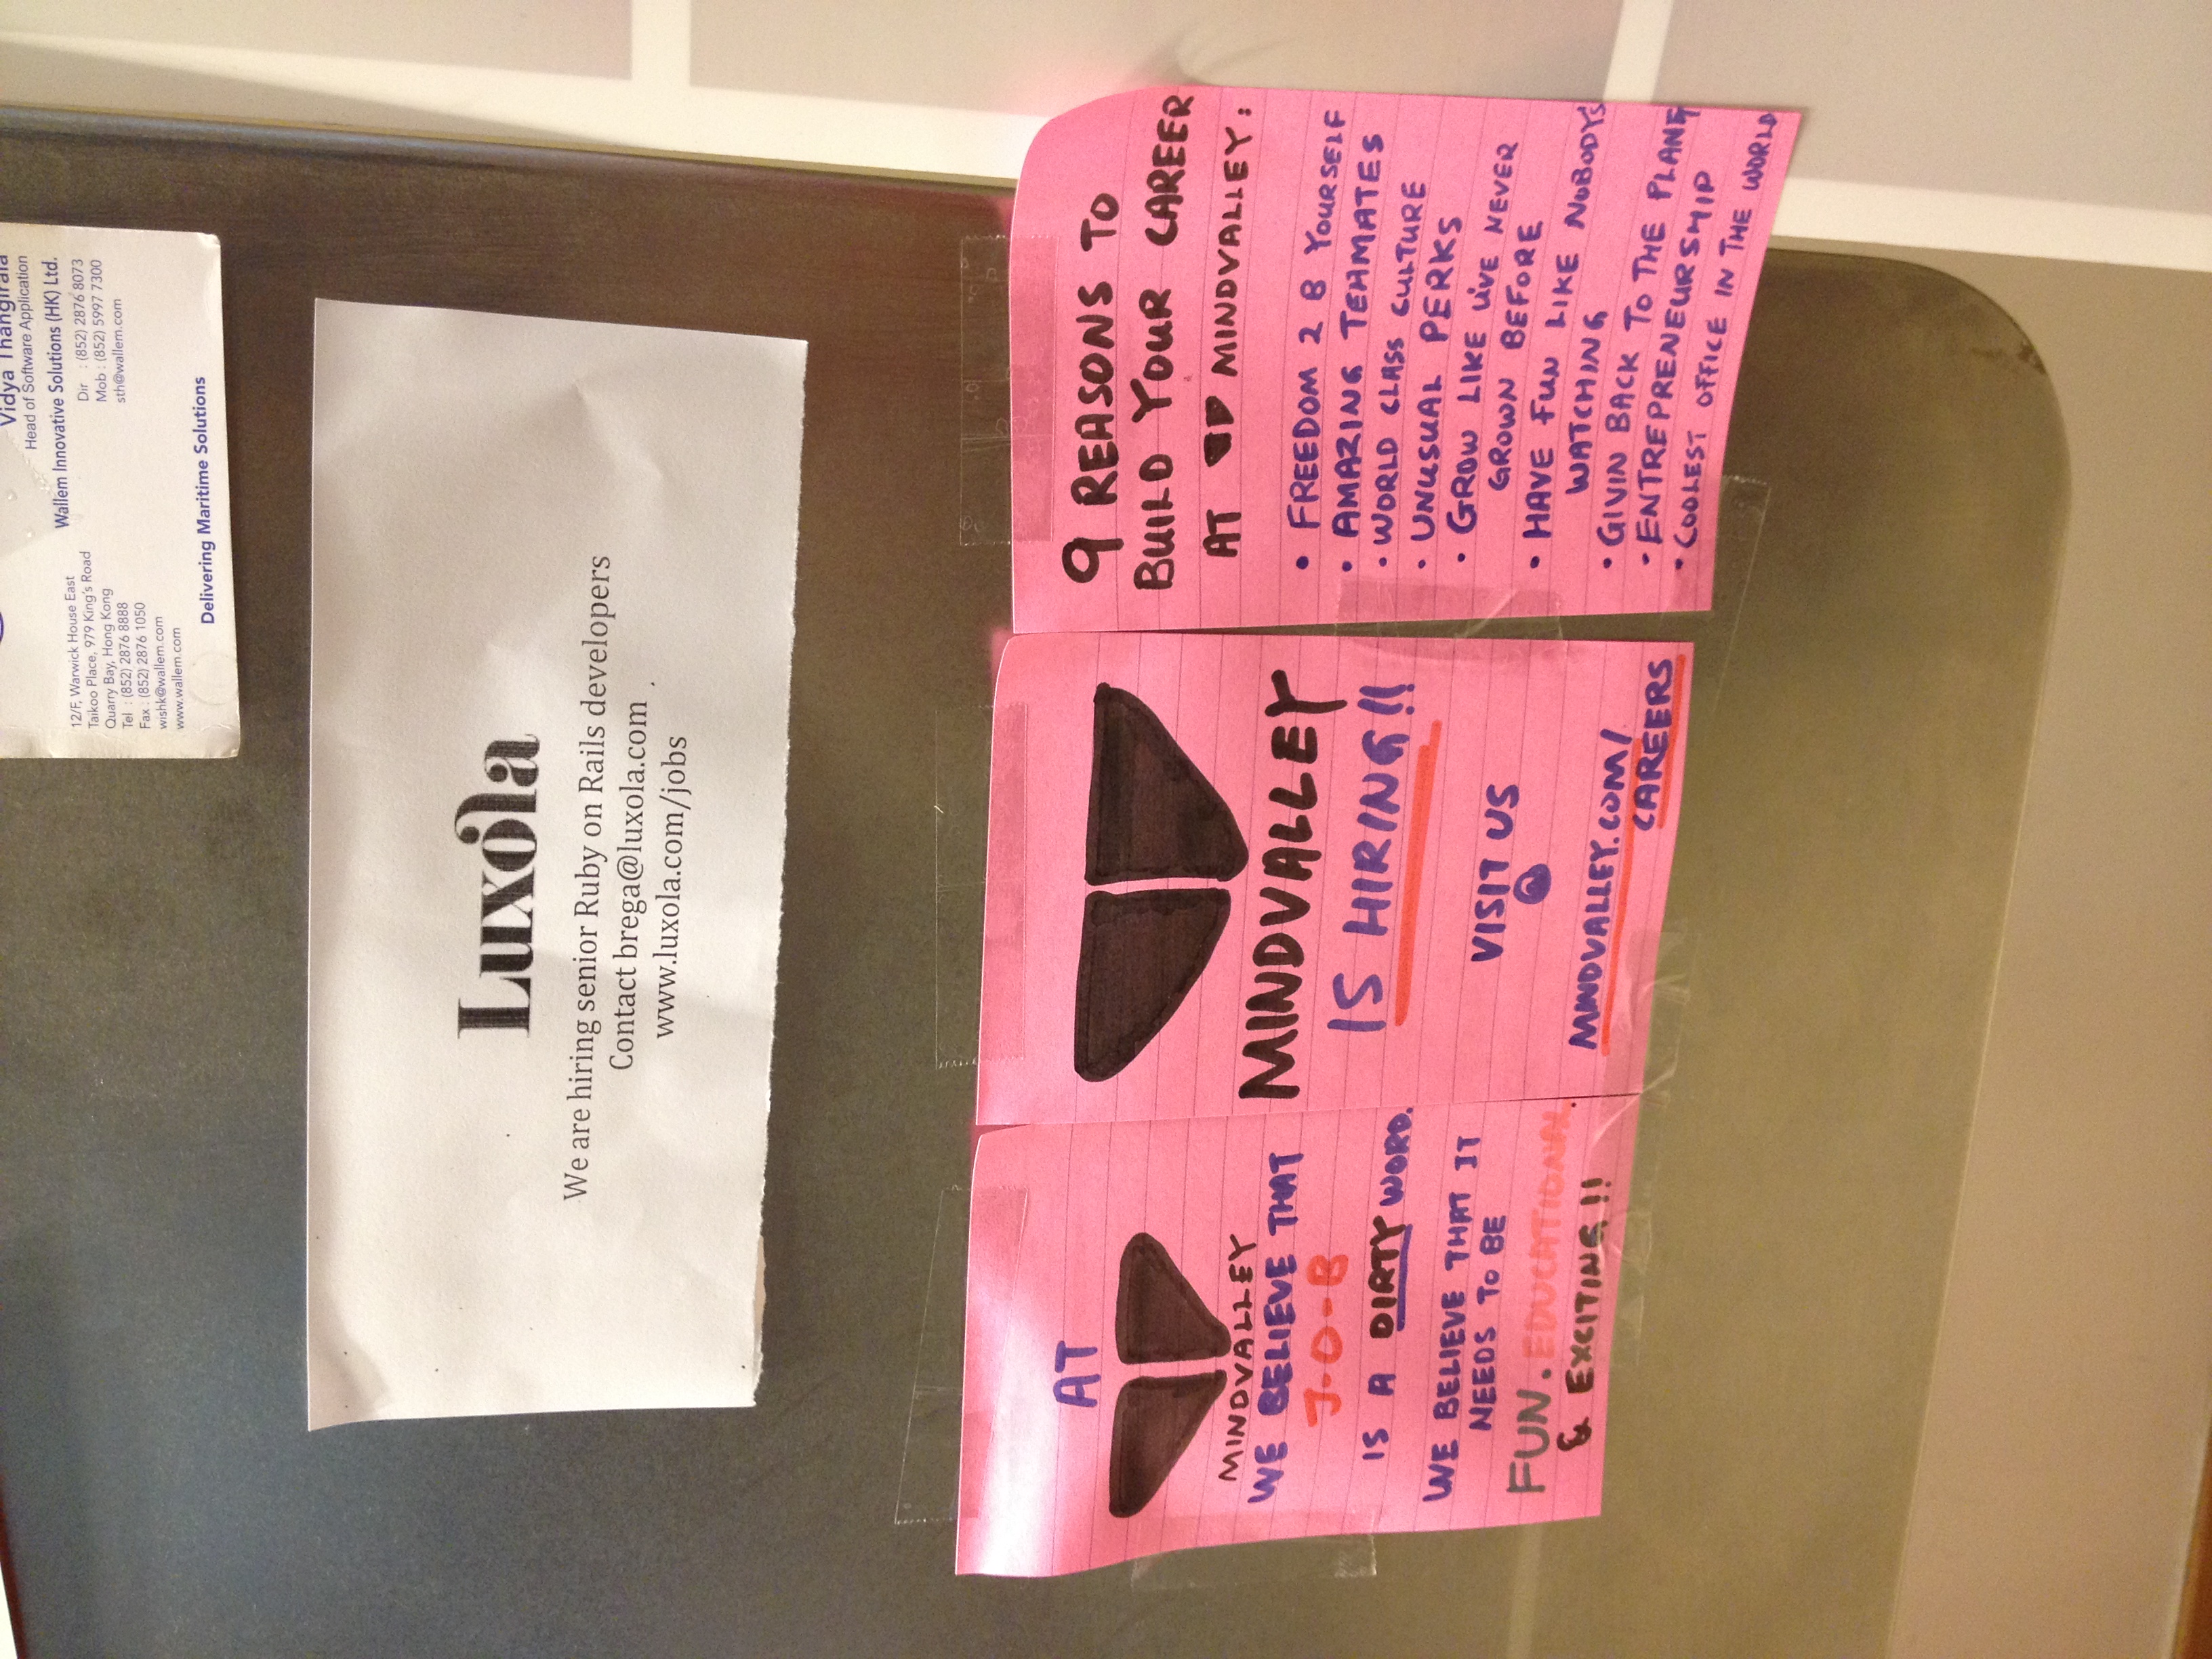 Vidya Thangirala
Head of Software Application
Wallem Innovative Solutions (HK) Ltd.
12/F, Warwick House East
Taikoo Place, 979 King's Road
Quarry Bay, Hong Kong
Tel : (852) 2876 8888
Fax : (852) 2876 1050
wishk@wallem.com
www.wallem.com
Dir : (852) 2876 8073
Mob : (852) 5997 7300
sth@wallem.com
Delivering Maritime Solutions
Luxola
We are hiring senior Ruby on Rails developers
Contact brega@luxola.com
www.luxola.com/jobs
AT
MINDVALLEY
WE BELIEVE THAT
J-O-B
IS A DIRTY WORD.
WE BELIEVE THAT IT
NEEDS TO BE
FUN. EDUCATIONAL.
& EXCITING!!
MINDVALLEY
IS HIRING!!
VISIT US
@
MINDVALLEY.COM/
CAREERS
9 REASONS TO
BUILD YOUR CAREER
AT MINDVALLEY:
• FREEDOM 2 B YOURSELF
• AMAZING TEAMATES
• WORLD CLASS CULTURE
• UNUSUAL PERKS
• GROW LIKE U'VE NEVER
GROWN BEFORE
• HAVE FUN LIKE NOBODY'S
WATCHING
• GIVIN BACK TO THE PLANET
• ENTREPRENEURSHIP
• COOLEST OFFICE IN THE WORLD